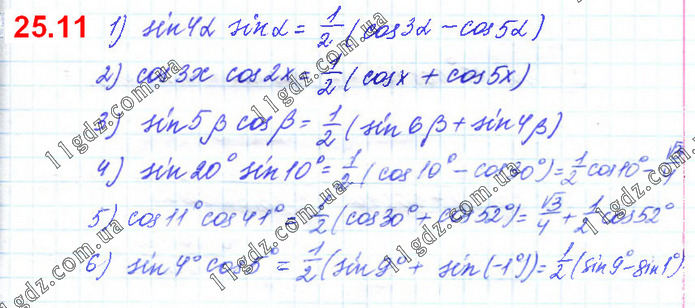 25.11 1) sin4α sinα = 1/2 (cos3α - cos5α)
2) cos3x cos2x = 1/2 (cosx + cos5x)
3) sin5β cosβ = 1/2 (sin6β + sin4β)
4) sin20° sin10° = 1/2 (cos10° - cos30°) = 1/2 cos10° - √3
5) cos11° cos41° = 1/2 (cos30° + cos52°) = √3/4 + 1/2 cos52°
6) sin4° cos5° = 1/2 (sin9° + sin(-1°)) = 1/2 (sin9° - sin1°)
11gdz.com.ua
11gdz.com.ua
11gdz.com.ua
11gdz.com.ua
11gdz.com.ua